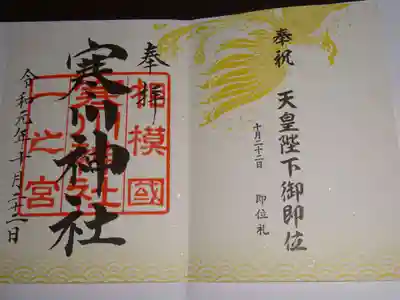 奉祝
天皇陛下御即位
十月二十二日 即位礼
奉拝
相模國
寒川神社
一之宮
寒川神社
令和元年十月二十二日